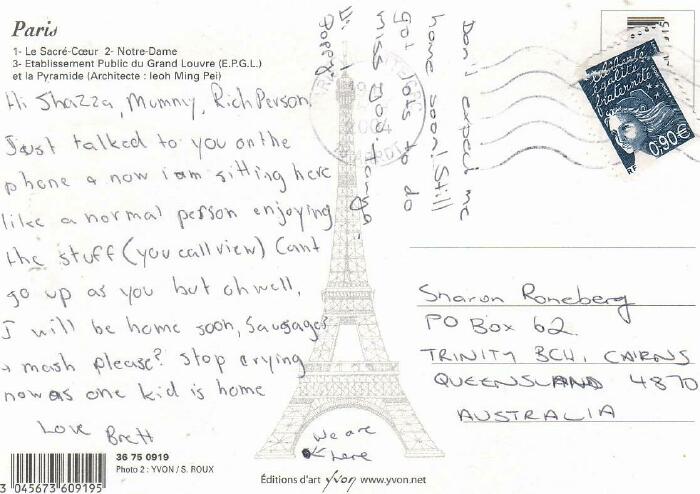 Paris
1- Le Sacré-Cœur 2- Notre-Dame
3- Etablissement Public du Grand Louvre (E.P.G.L.)
et la Pyramide (Architecte : Ieoh Ming Pei)
Hi Shazza, Mummy, Rich Person
Just talked to you on the
phone & now i am sitting here
like a normal person enjoying
the stuff (you call view) Cant
go up as you but oh well,
I will be home soon, Sausages
& mash please? Stop crying
now as one kid is home
Love Brett
we are
here
Don't expect me
home soon! Still
got lots to do
miss you
liberté
égalité
fraternité
RF
0,90€
2004
Sharon Roneberg
PO BOX 62
TRINITY BCH, CAIRNS
QUEENSLAND 4870
AUSTRALIA
36 75 0919
Photo 2 : YVON / S. ROUX
3 045673 609195
Éditions d'art yvon www.yvon.net